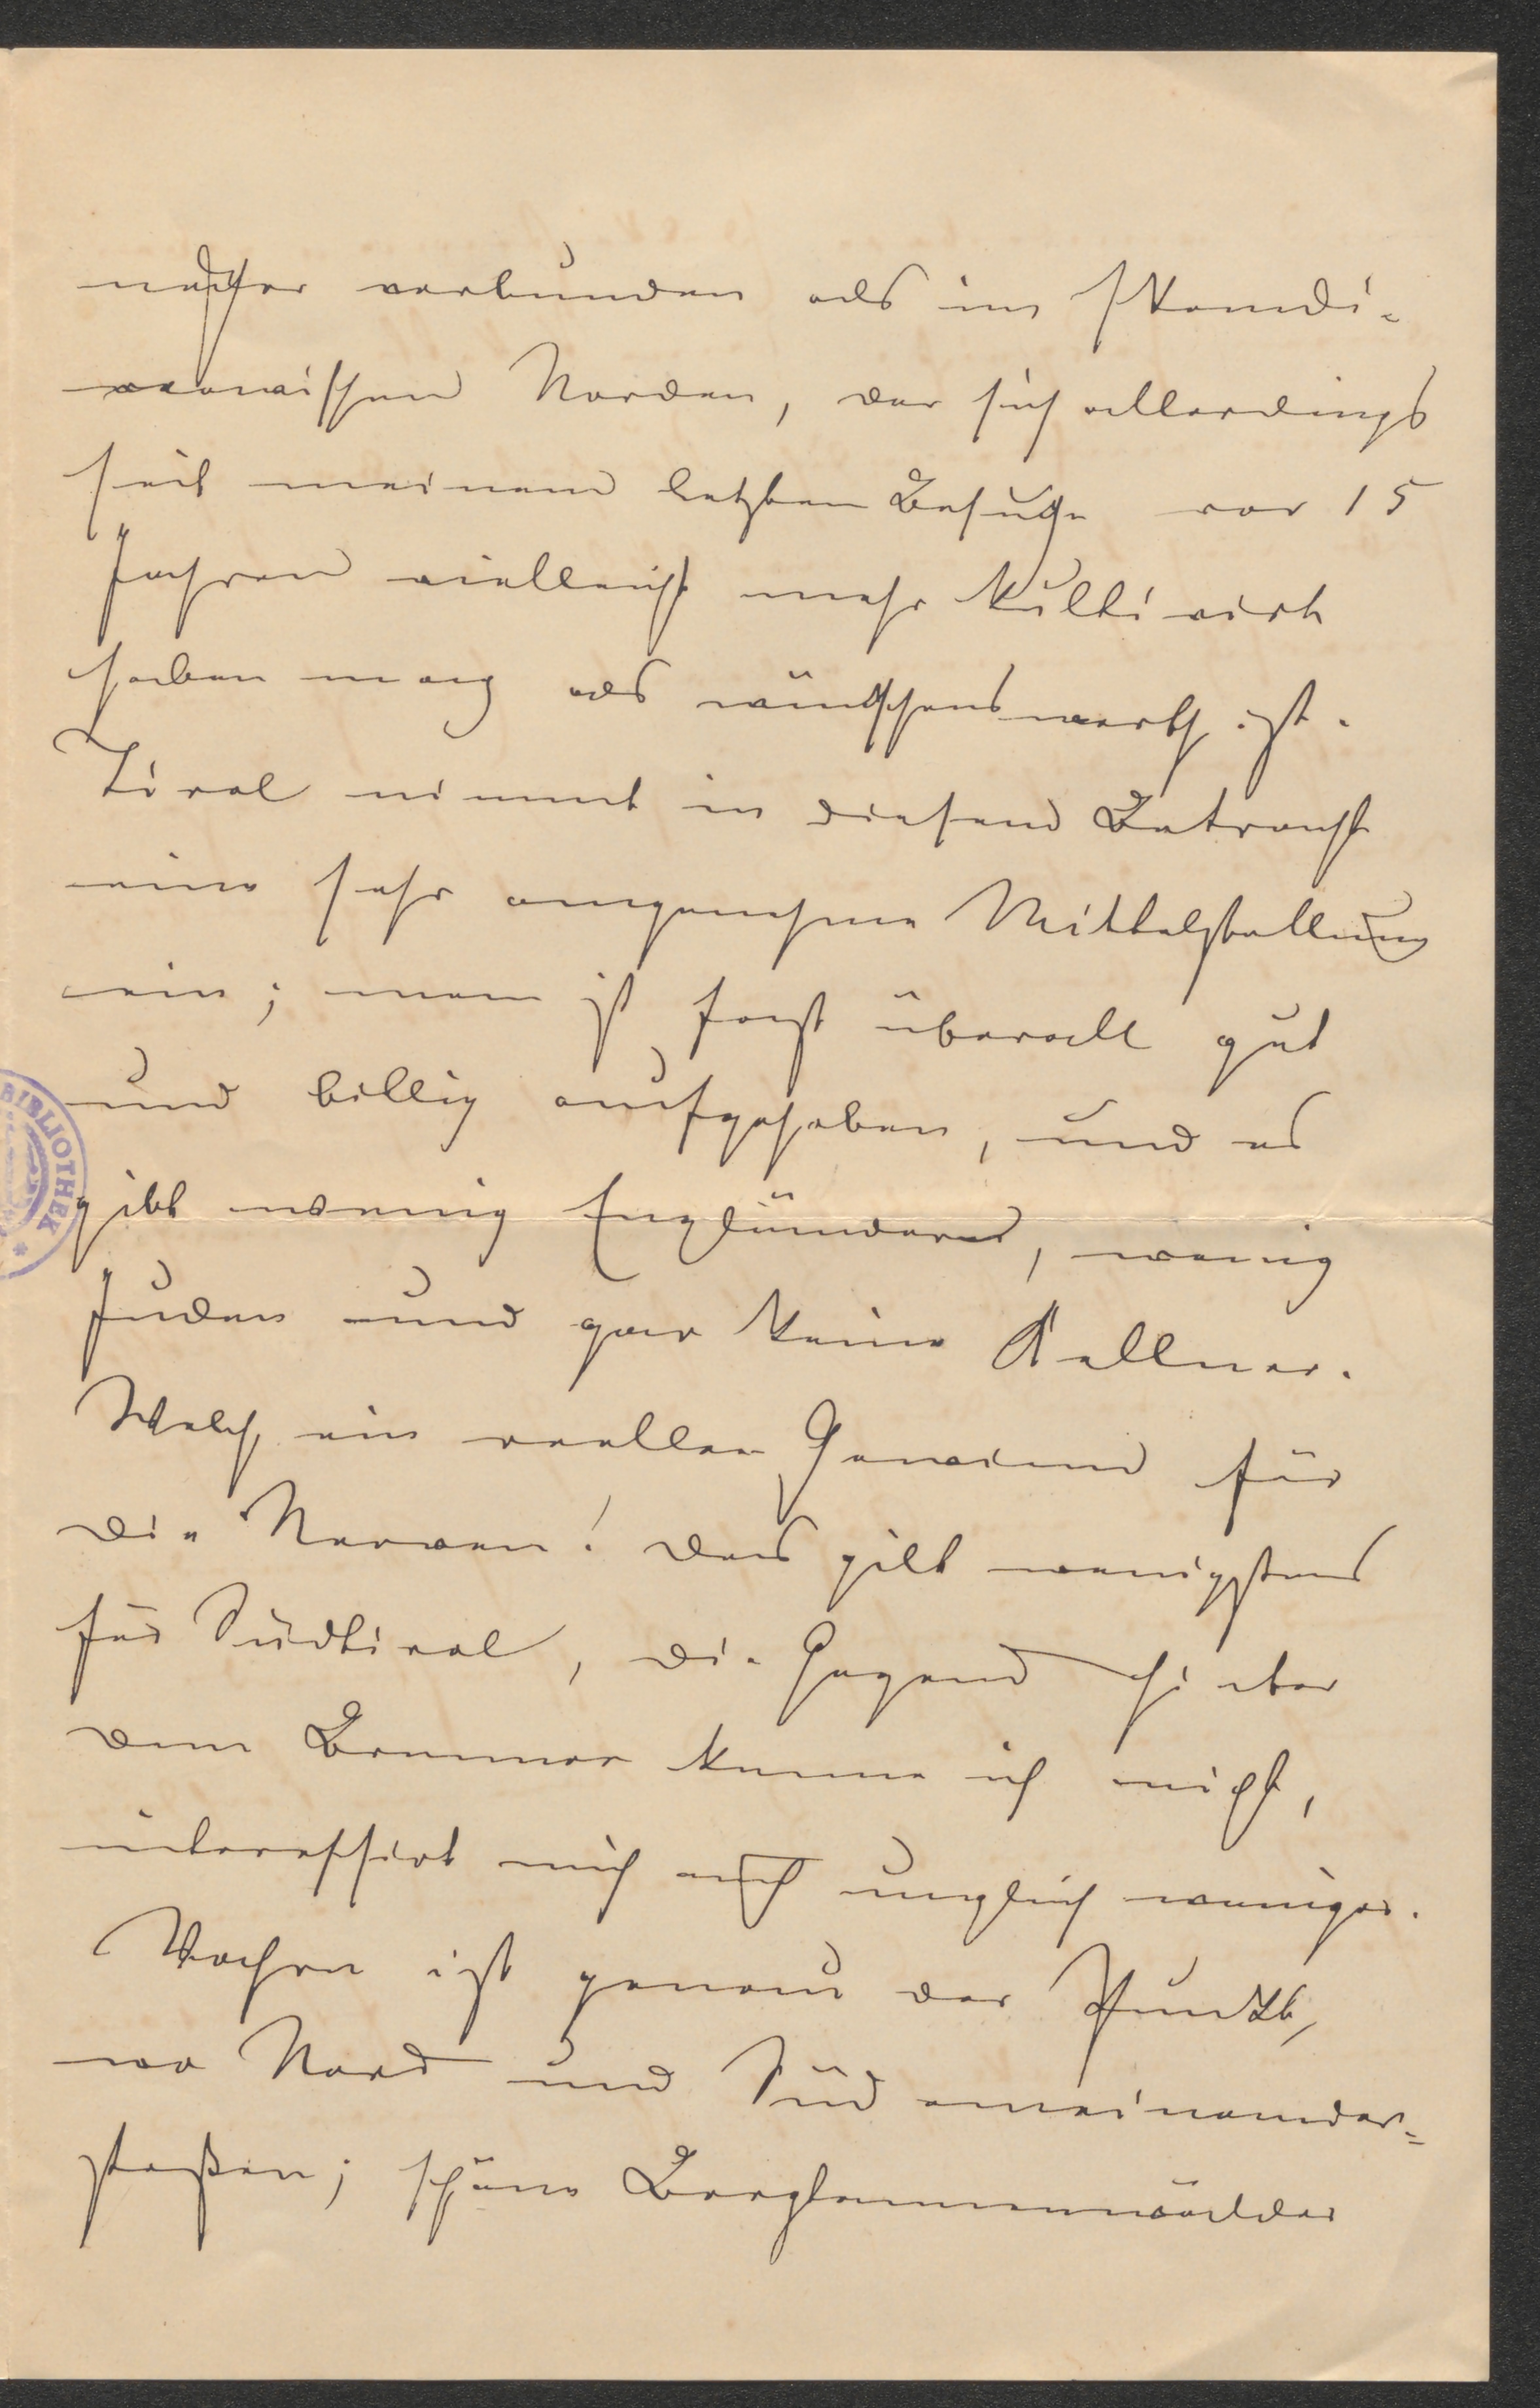 näher verbunden als im Skandi-
navischen Norden, der sich allerdings
seit meinem letzten Besuche vor 15
Jahren vielleicht mehr kultivirt
haben mag als wünschenswerth ist.
Tirol nimmt in diesem Betracht
eine sehr angenehme Mittelstellung
ein; man ist fast überall gut
und billig aufgehoben, und es
gibt wenig Engländer, wenig
Juden und gar keine Kellner.
Welch ein reeller Gewinn für
die Nerven! Das gilt wenigstens
für Südtirol, die Gegend hinter
dem Brenner kenne ich nicht,
interessirt mich auch ungleich weniger.
Vahrn ist genau der Punkt,
wo Nord und Süd aneinander-
stoßen; schöne Bergtannenwälder
BIBLIOTHEK